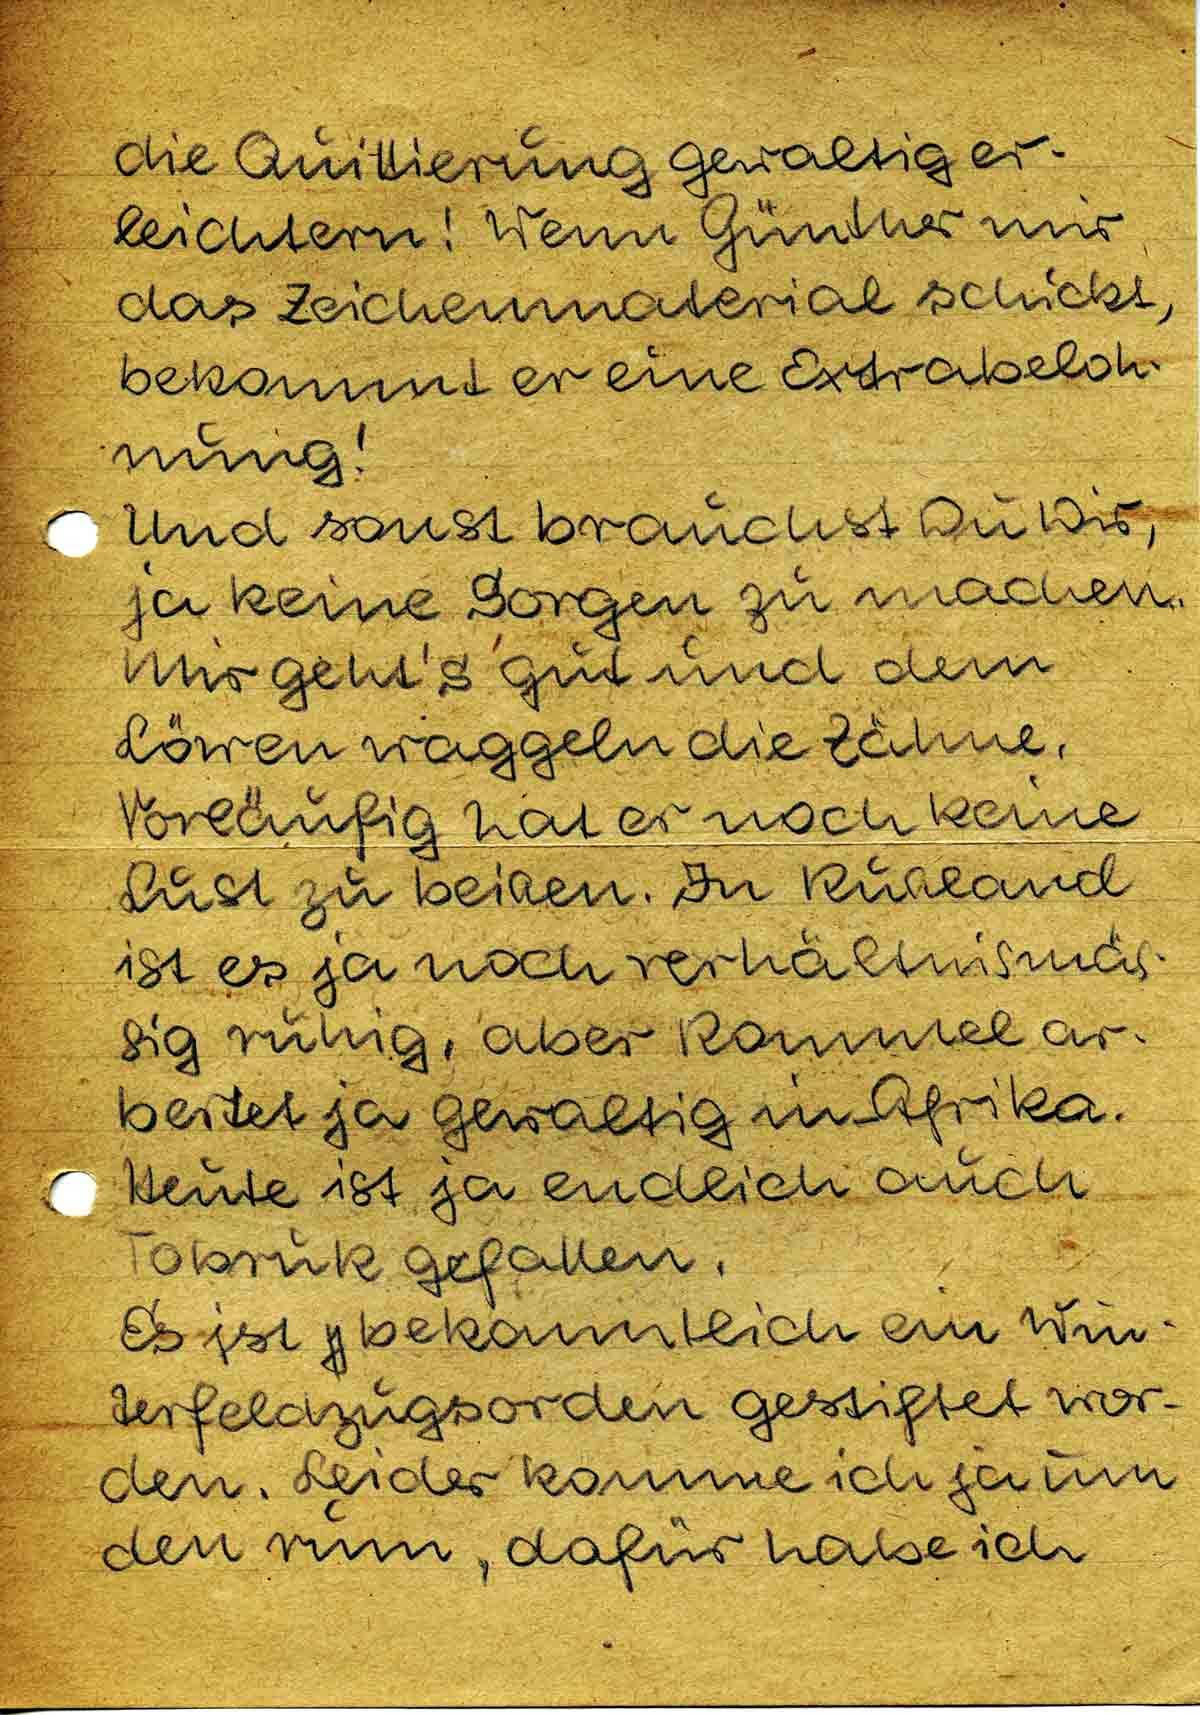 die Quittierung gewaltig er-
leichtern! Wenn Günther mir
das Zeichenmaterial schickt,
bekommt er eine Extrabeloh-
nung!
Und sonst brauchst Du Dir,
ja keine Sorgen zu machen.
Mir geht's gut und dem
Löwen waggeln die Zähne.
Vorläufig hat er noch keine
Lust zu beißen. In Rußland
ist es ja noch verhältnismäs-
sig ruhig, aber Rommel ar-
beitet ja gewaltig in Afrika.
Heute ist ja endlich auch
Tobruk gefallen.
Es ist bekanntlich ein Win-
terfeldzugsorden gestiftet wor-
den. Leider komme ich ja um
den rum, dafür habe ich